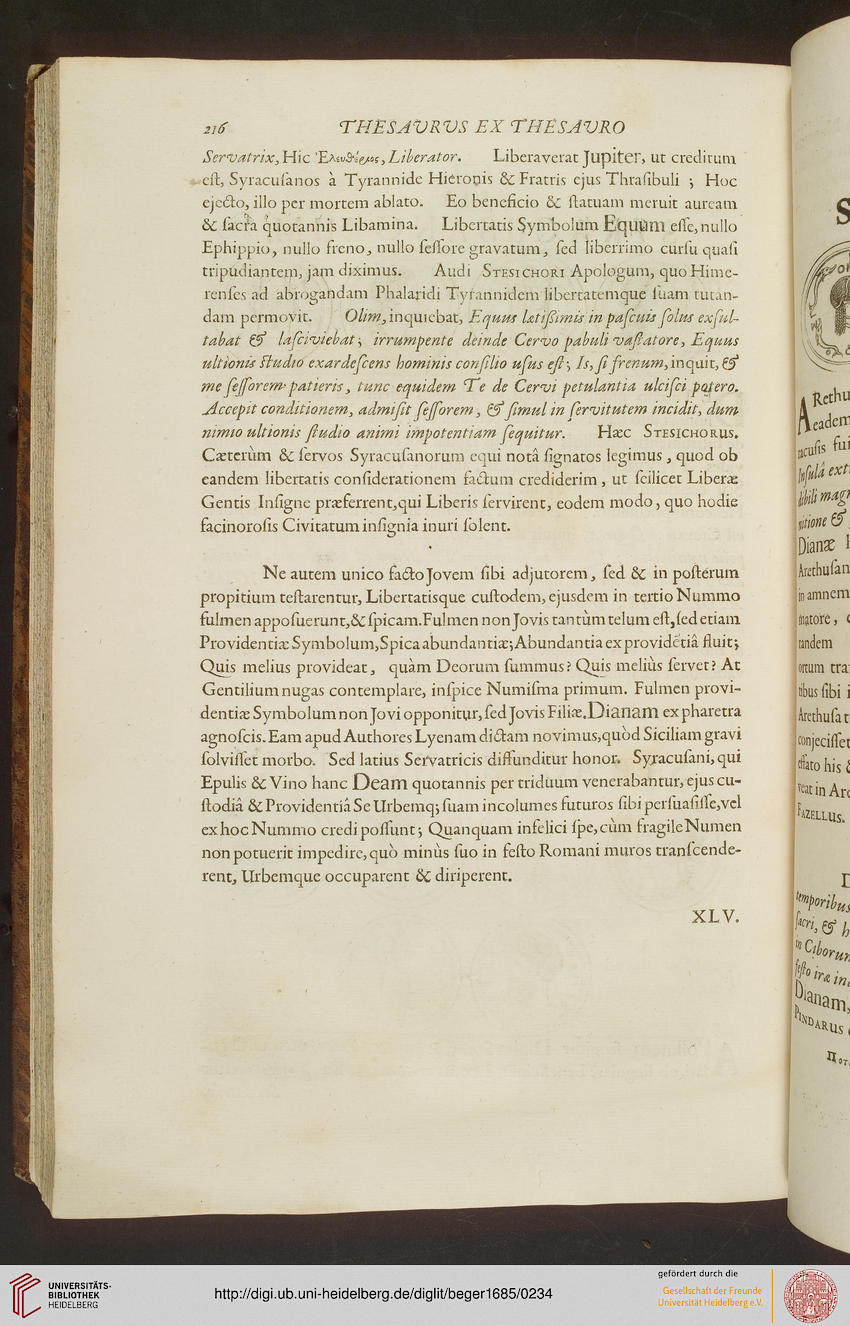 216 THESAURUS EX THESAURO
Servatrix, Hic Ἐλευθέριος, Liberator. Liberaverat Jupiter, ut creditum
est, Syracusanos à Tyrannide Hieronis & Fratris ejus Thrasibuli ; Hoc
ejecto, illo per mortem ablato. Eo beneficio & statuam meruit auream
& sacra quotannis Libamina. Libertatis Symbolum Equum esse, nullo
Ephippio, nullo freno, nullo sessore gravatum, sed liberrimo cursu quasi
tripudiantem, jam diximus. Audi STESICHORI Apologum, quo Hime-
renses ad abrogandam Phalaridi Tyrannidem libertatemque suam tutan-
dam permovit. Olim, inquiebat, Equus lætißimis in pascuis solus exsul-
tabat & lasciviebat ; irrumpente deinde Cervo pabuli vastatore, Equus
ultionis studio exardescens hominis consilio usus est ; Is, si frenum, inquit, &
me sessorem patieris, tunc equidem Te de Cervi petulantia ulcisci potero.
Accepit conditionem, admisit sessorem, & simul in servitutem incidit, dum
nimio ultionis studio animi impotentiam sequitur. Hæc STESICHORUS.
Cæterùm & servos Syracusanorum equi notâ signatos legimus, quod ob
eandem libertatis considerationem factum crediderim, ut scilicet Liberæ
Gentis Insigne præferrent, qui Liberis servirent, eodem modo, quo hodie
facinorosis Civitatum insignia inuri solent.
Ne autem unico facto Jovem sibi adjutorem, sed & in posterum
propitium testarentur, Libertatisque custodem, ejusdem in tertio Nummo
fulmen apposuerunt, & spicam. Fulmen non Jovis tantùm telum est, sed etiam
Providentiæ Symbolum, Spica abundantiæ; Abundantia ex providētiâ fluit;
Quis melius provideat, quàm Deorum summus? Quis meliùs servet? At
Gentilium nugas contemplare, inspice Numisma primum. Fulmen provi-
dentiæ Symbolum non Jovi opponitur, sed Jovis Filiæ. Dianam ex pharetra
agnoscis. Eam apud Authores Lyenam dictam novimus, quòd Siciliam gravi
solvisset morbo. Sed latius Servatricis diffunditur honor. Syracusani, qui
Epulis & Vino hanc Deam quotannis per triduum venerabantur, ejus cu-
stodiâ & Providentiâ Se Urbemq; suam incolumes futuros sibi persuasisse, vel
ex hoc Nummo credi possunt ; Quanquam infelici spe, cùm fragile Numen
non potuerit impedire, quò minùs suo in festo Romani muros transcende-
rent, Urbemque occuparent & diriperent.
XLV.
S
ARethu
eadem
racusis fui
Insulâ ext
dibili mag
nitione &
Dianæ
Arethusan
in amnem
matore,
tandem
ortum tra
tibus sibi i
Arethusa t
conjecisset
effato his
veat in Are
FAZELLUS.
D
temporibus
sacri, & h
in Ciborum
festo iræ in
Dianam,
PINDARUS
Ποτ
UNIVERSITÄTS-
BIBLIOTHEK
HEIDELBERG
http://digi.ub.uni-heidelberg.de/diglit/beger1685/0234
gefördert durch die
Gesellschaft der Freunde
Universität Heidelberg e.V.